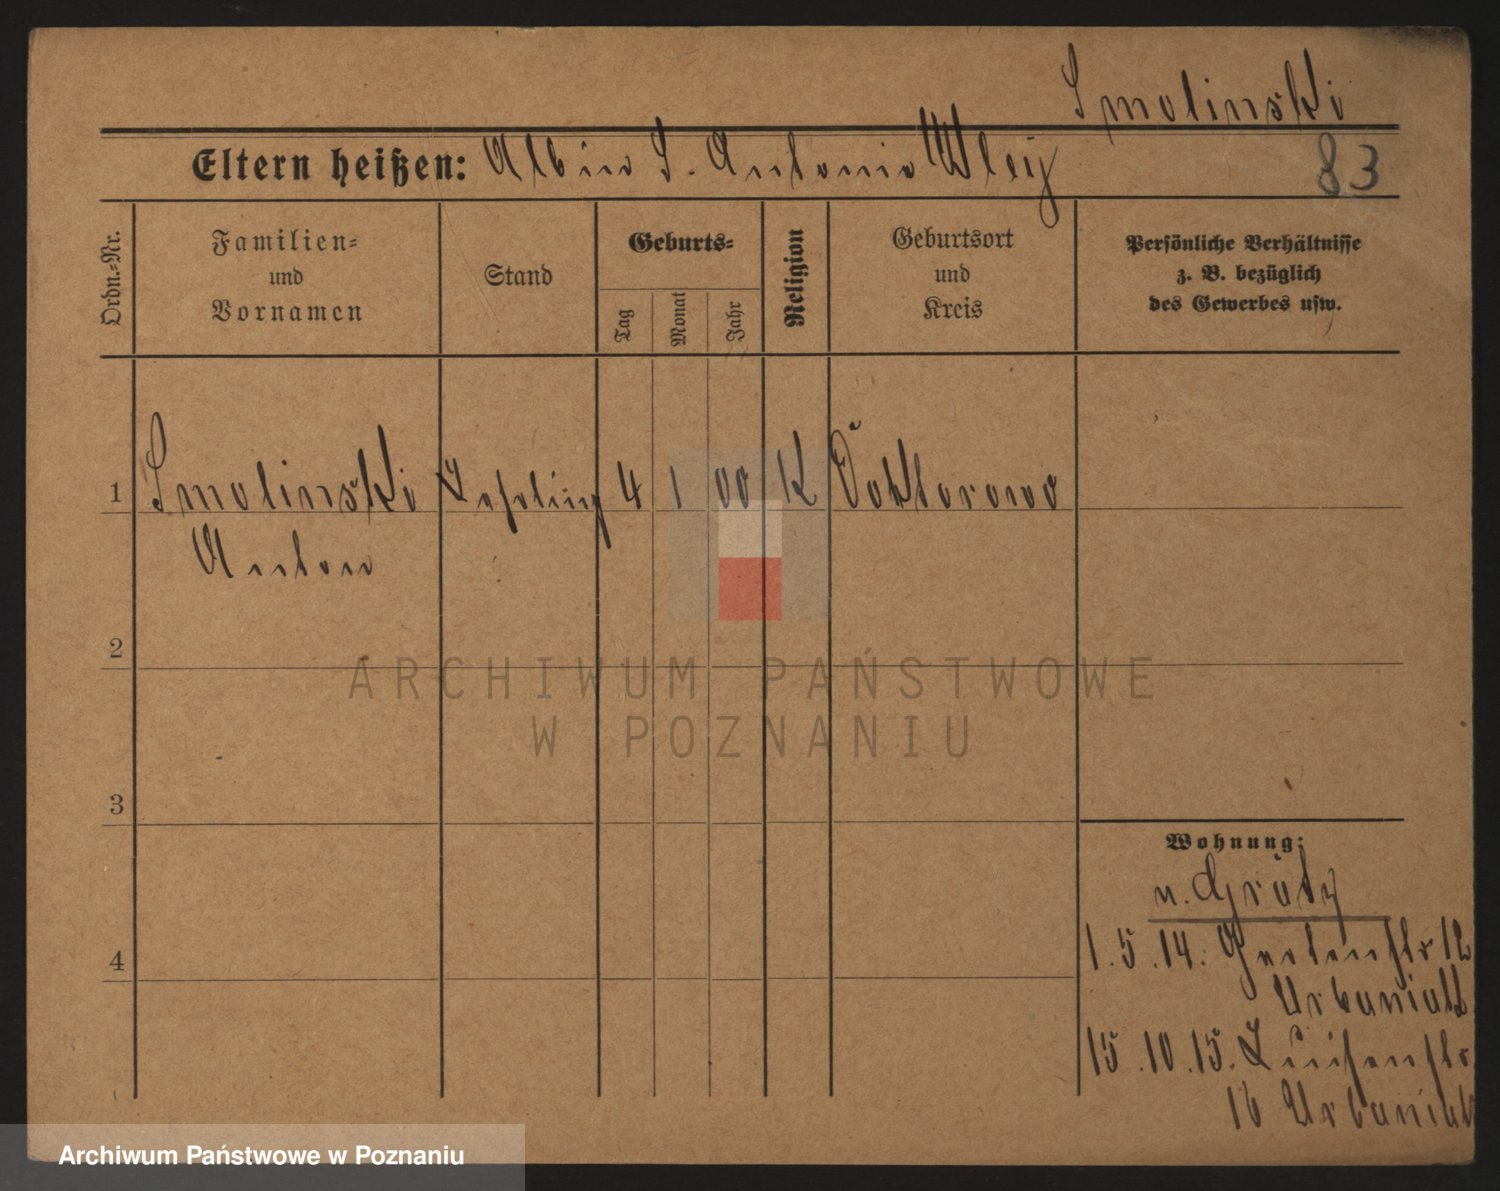 Smolinski
Eltern heißen: Albin S. Antonie Wleÿ
83
Ordn.-Nr.
Familien-
und
Vornamen
Stand
Geburts-
Tag
Monat
Jahr
Religion
Geburtsort
und
Kreis
Persönliche Verhältnisse
z. B. bezüglich
des Gewerbes usw.
1 Smolinski Lehrling 4 1 00 K Doktorowo
Anton
2
3
4
ARCHIWUM PAŃSTWOWE
W POZNANIU
Wohnung:
n. Grätz
1.5.14. Gartenstr 12
Urbaniak
15.10.15. Luisenstr
16 Urbaniak
Archiwum Państwowe w Poznaniu